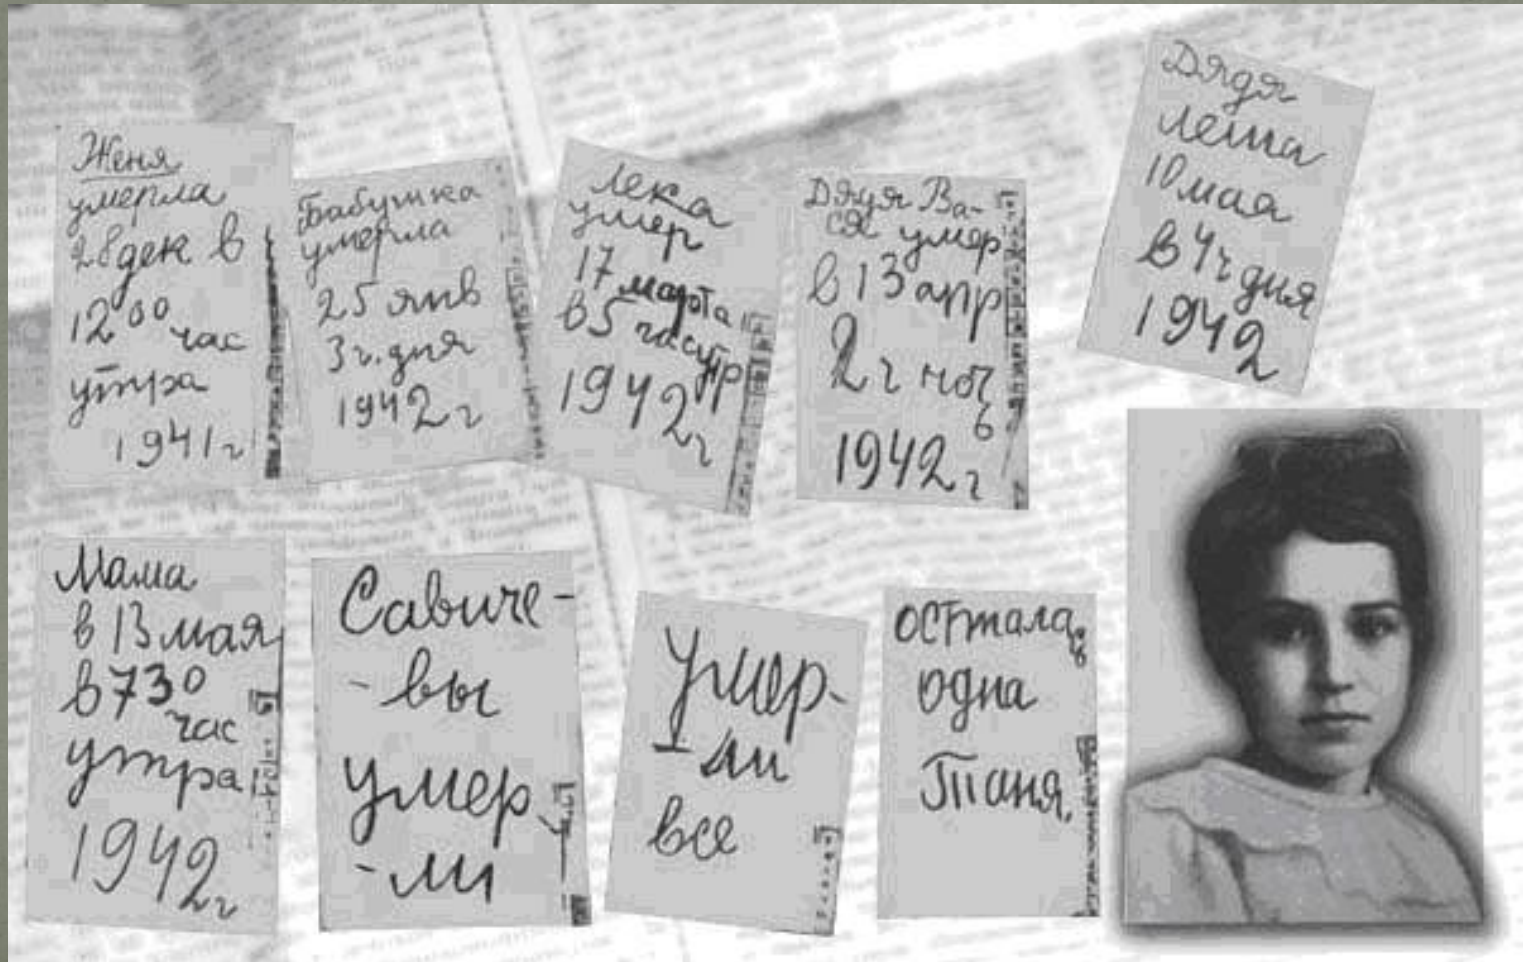 Женя
умерла
28 дек в
12⁰⁰ час
утра
1941 г
Бабушка
умерла
25 янв
3 ч. дня
1942 г
Лека
умер
17 марта
в 5 час утр
1942 г
Дядя Ва-
ся умер
в 13 апр
2 ч ноч
ь
1942 г
Дядя
Леша
10 мая
в 4 ч дня
1942
Мама
в 13 мая
в 7³⁰
час
утра
1942 г
Савиче-
-вы
умер
-ли
Умер-
-ли
все
Осталась
одна
Таня.